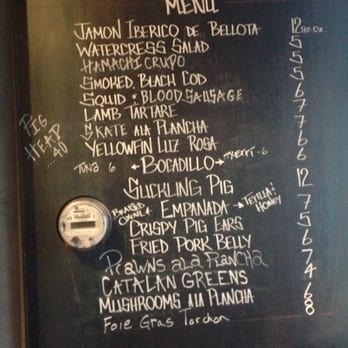 MENU
JAMON IBERICO DE BELLOTA 12
WATERCRESS SALAD 5
HAMACHI CRUDO 5
SMOKED BLACK COD 5
SQUID & BLOOD SAUSAGE 6
LAMB TARTARE 7
SKATE A LA PLANCHA 7
YELLOWFIN LUZ ROSA 6
PIG
HEAD
...40
TUNA 6 ←BOCADILLO→ TXERRI-6 6
SUCKLING PIG 12
BRAISED
OXTAIL ← EMPANADA → TETILLA &
HONEY 7
CRISPY PIG EARS 5
FRIED PORK BELLY 6
PRAWNS A LA PLANCHA 7
CATALAN GREENS 4
MUSHROOMS A LA PLANCHA 6
Foie Gras Torchon 8